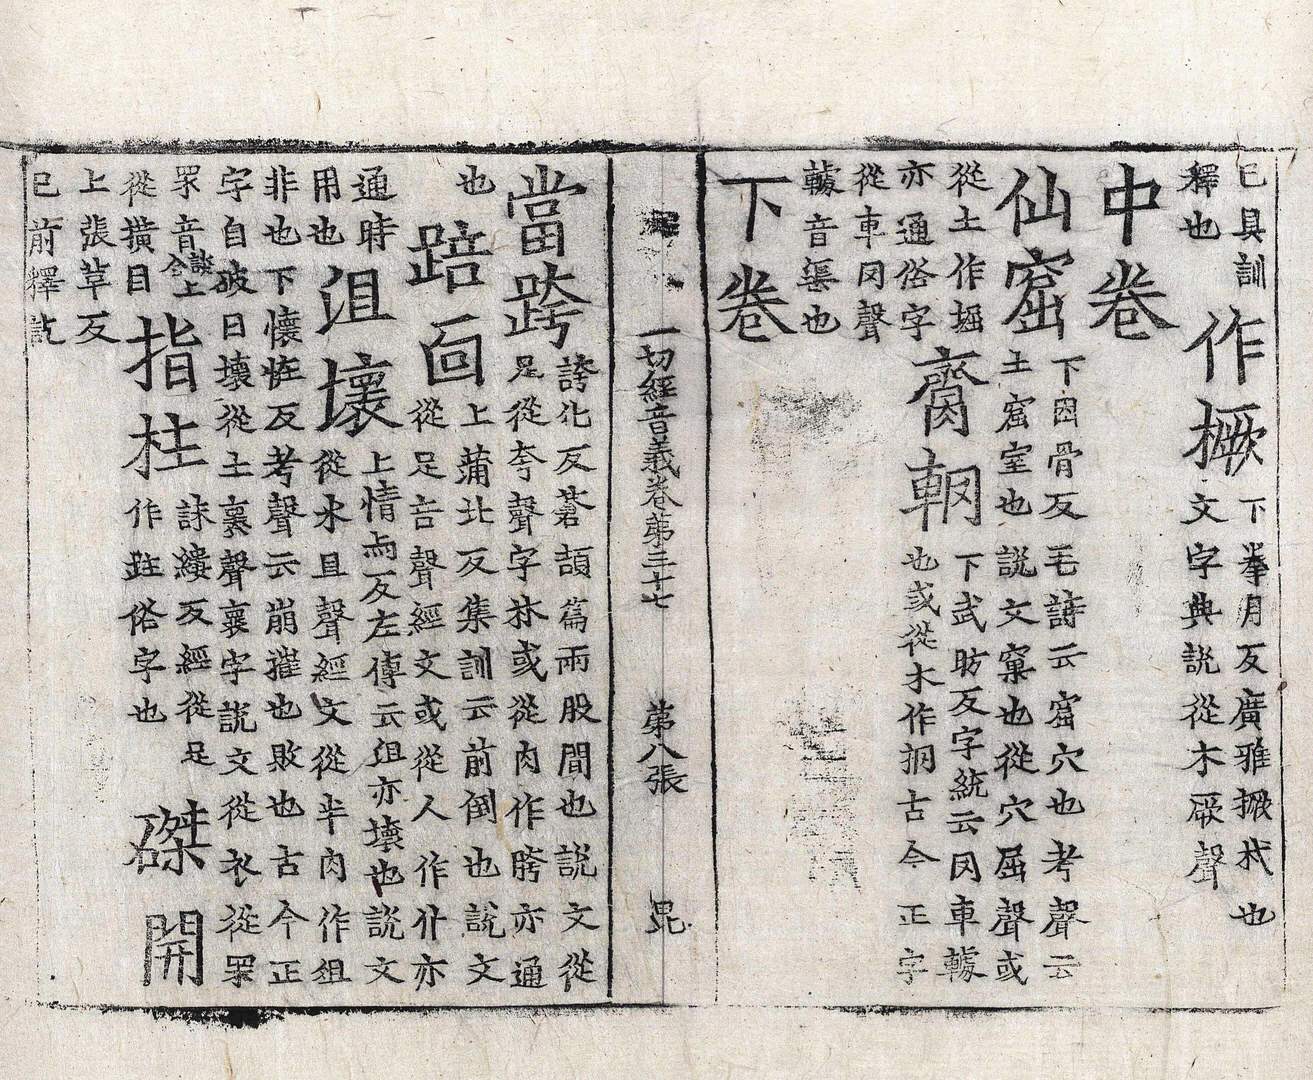 已具訓
釋也
作橛
下拳月反廣雅撅杙也
文字典說從木厥聲
中卷
仙窟
下困骨反毛詩云窟穴也考聲云
土窟室也說文窠也從穴屈聲或
從土作堀
亦通俗字
臍輞
下武昉反字統云罔車𨎶
也或從木作棢古今正字
從車罔聲
𨎶音渠也
下卷
一切經音義卷第三十七 第八張 毘
當跨
誇化反蒼頡篇兩股間也說文從
足從夸聲字林或從肉作胯亦通
也
踣面
上蒲北反集訓云前倒也說文
從足咅聲經文或從人作仆亦
通時
用也
沮壞
上情與反左傳云沮亦壞也說文
從水且聲經文從半肉作俎
非也下懷怪反考聲云崩摧也敗也古今正
字自破曰壞從土褱聲褱字說文從衣從眔
眔音談上
從橫目
指柱
誅縷反經從足
作跓俗字也
磔開
上張革反
已前釋訖